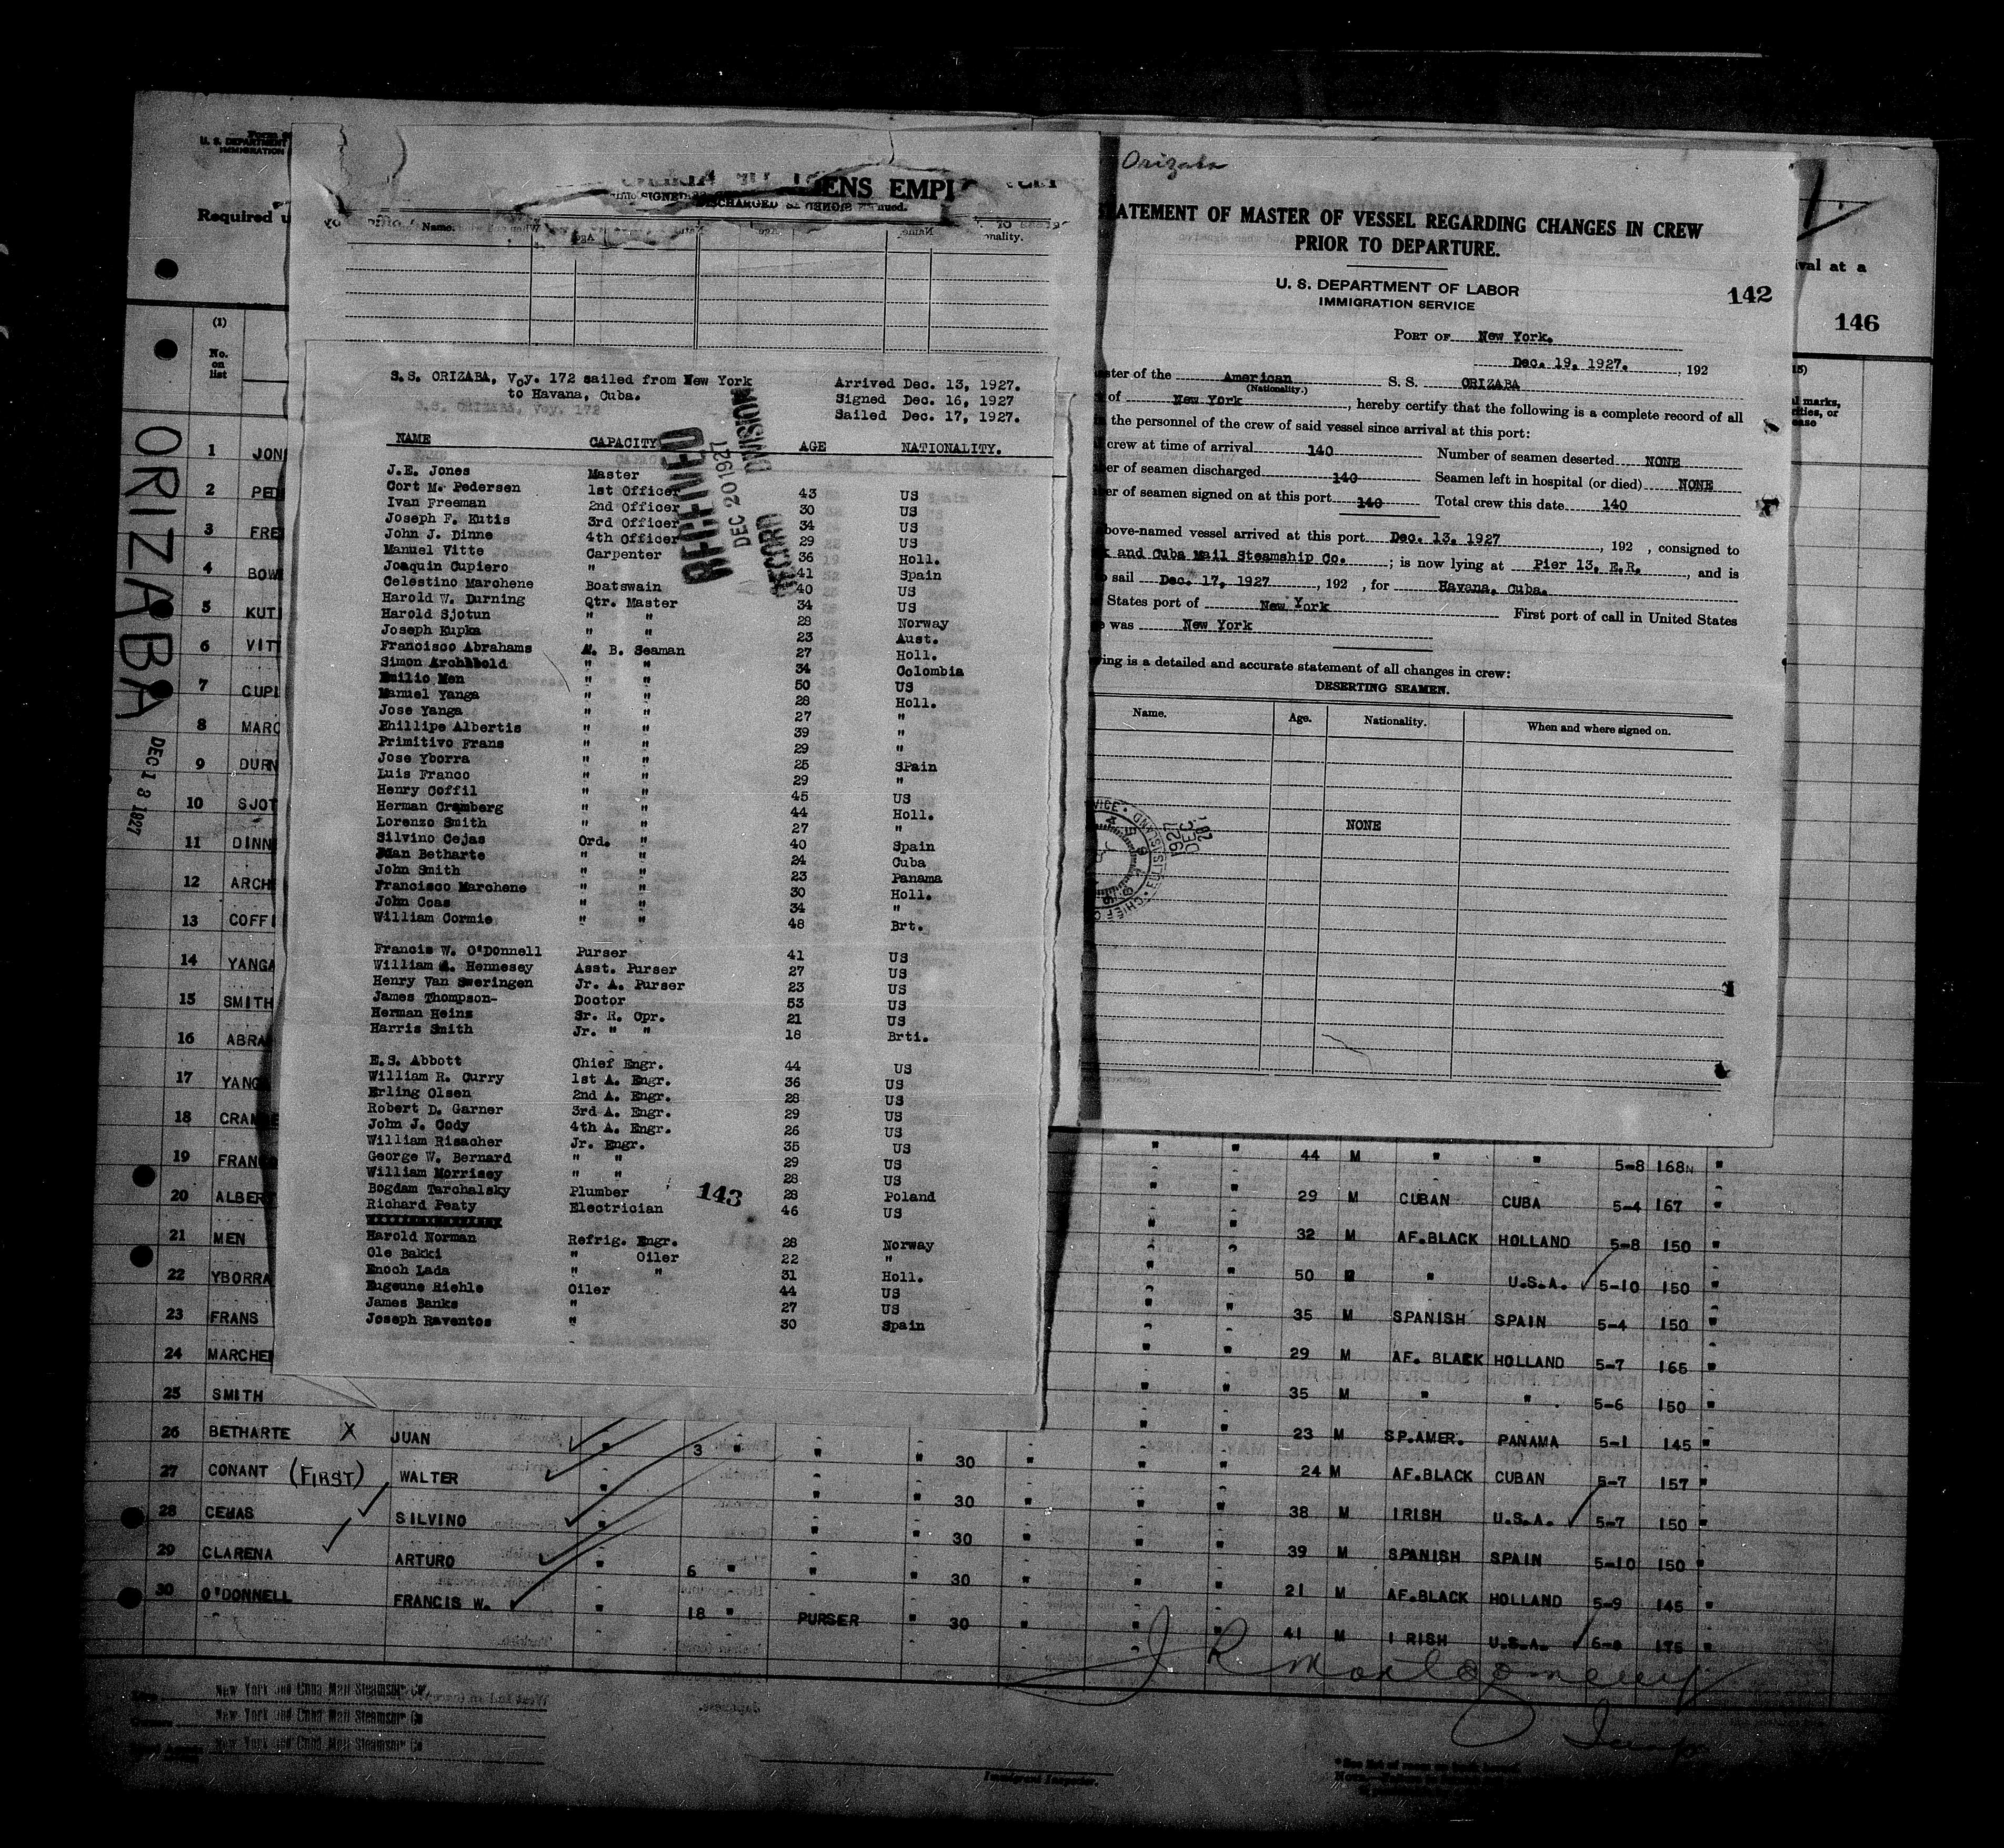 Orizaba
U. S. DEPARTMENT
IMMIGRATION
Required
ENS EMPL
DISCHARGED
Name.
STATEMENT OF MASTER OF VESSEL REGARDING CHANGES IN CREW
PRIOR TO DEPARTURE.
U. S. DEPARTMENT OF LABOR
IMMIGRATION SERVICE
142
146
val at a
PORT OF New York.
Dec. 19, 1927. , 192
ster of the American S. S. ORIZABA
(Nationality.)
of New York , hereby certify that the following is a complete record of all
the personnel of the crew of said vessel since arrival at this port:
crew at time of arrival 140 Number of seamen deserted NONE
er of seamen discharged 140 Seamen left in hospital (or died) NONE
er of seamen signed on at this port 140 Total crew this date 140
bove-named vessel arrived at this port Dec. 13, 1927 , 192 , consigned to
k and Cuba Mail Steamship Co. ; is now lying at Pier 13, E.R. , and is
sail Dec. 17, 1927 , 192 , for Havana, Cuba.
States port of New York First port of call in United States
was New York
ing is a detailed and accurate statement of all changes in crew:
DESERTING SEAMEN.
Name. Age. Nationality. When and where signed on.
NONE
S.S. ORIZABA, Voy. 172 sailed from New York Arrived Dec. 13, 1927.
to Havana, Cuba. Signed Dec. 16, 1927
Sailed Dec. 17, 1927.
RECEIVED
DEC 20 1927
RECORD DIVISION
NAME CAPACITY AGE NATIONALITY.
J.E. Jones Master
Cort M. Pedersen 1st Officer 43 US
Ivan Freeman 2nd Officer 30 US
Joseph F. Kutis 3rd Officer 34 US
John J. Dinne 4th Officer 29 US
Manuel Vitte Carpenter 36 Holl.
Joaquin Cupiero " 41 Spain
Celestino Marchene Boatswain 40 US
Harold W. Durning Qtr. Master 34 US
Harold Sjotun " " 28 Norway
Joseph Kupka " " 23 Aust.
Francisco Abrahams A. B. Seaman 27 Holl.
Simon Archbold " " 34 Colombia
Emilio Men " " 50 US
Manuel Yanga " " 28 Holl.
Jose Yanga " " 27 "
Phillipe Albertis " " 39 "
Primitivo Frans " " 29 "
Jose Yborra " " 25 Spain
Luis Franco " " 29 "
Henry Coffil " " 45 US
Herman Cramberg " " 44 Holl.
Lorenzo Smith " " 27 "
Silvino Cejas Ord. " 40 Spain
Juan Betharte " " 24 Cuba
John Smith " " 23 Panama
Francisco Marchene " " 30 Holl.
John Coas " " 34 "
William Cormie " " 48 Brt.
Francis W. O'Donnell Purser 41 US
William A. Hennesey Asst. Purser 27 US
Henry Van Sweringen Jr. A. Purser 23 US
James Thompson- Doctor 53 US
Herman Heins Sr. R. Opr. 21 US
Harris Smith Jr. " " 18 Brti.
E.S. Abbott Chief Engr. 44 US
William R. Curry 1st A. Engr. 36 US
Erling Olsen 2nd A. Engr. 28 US
Robert D. Garner 3rd A. Engr. 29 US
John J. Cody 4th A. Engr. 26 US
William Risacher Jr. Engr. 35 US
George W. Bernard " " 29 US
William Morrisey " " 28 US
Bogdam Tarchalsky Plumber 28 Poland
Richard Peaty Electrician 46 US
143
Harold Norman Refrig. Engr. 28 Norway
Ole Bakki " Oiler 22 "
Enoch Lada " " 31 Holl.
Eugeune Riehle Oiler 44 US
James Banks " 27 US
Joseph Raventos " 30 Spain
ORIZABA
DEC 13 1927
(1)
No.
on
list
1 JON
2 PED
3 FRE
4 BOW
5 KUTI
6 VITT
7 CUPI
8 MARC
9 DURN
10 SJOT
11 DINN
12 ARCH
13 COFFI
14 YANGA
15 SMITH
16 ABRA
17 YANG
18 CRAM
19 FRAN
20 ALBER
21 MEN
22 YBORRA
23 FRANS
24 MARCHE
25 SMITH
26 BETHARTE X JUAN " 3 " " " 30
27 CONANT (FIRST) WALTER " " 30
28 CEHAS SILVINO " " " 30
29 CLARENA ARTURO " 6 " " " 30
30 O'DONNELL FRANCIS W. " 18 " PURSER " 30
44 M " " 5-8 168 "
29 M CUBAN CUBA 5-4 167 "
32 M AF.BLACK HOLLAND 5-8 150 "
50 M " U.S.A. 5-10 150 "
35 M SPANISH SPAIN 5-4 150 "
29 M AF. BLACK HOLLAND 5-7 165 "
35 M " " 5-6 150 "
23 M SP.AMER. PANAMA 5-1 145 "
24 M AF.BLACK CUBAN 5-7 157 "
38 M IRISH U.S.A. 5-7 150 "
39 M SPANISH SPAIN 5-10 150 "
21 M AF.BLACK HOLLAND 5-9 145 "
41 M IRISH U.S.A. 175 "
J R Montgomery
New York and Cuba Mail Steamship Co
New York and Cuba Mail Steamship Co
New York and Cuba Mail Steamship Co
Immigrant Inspector.